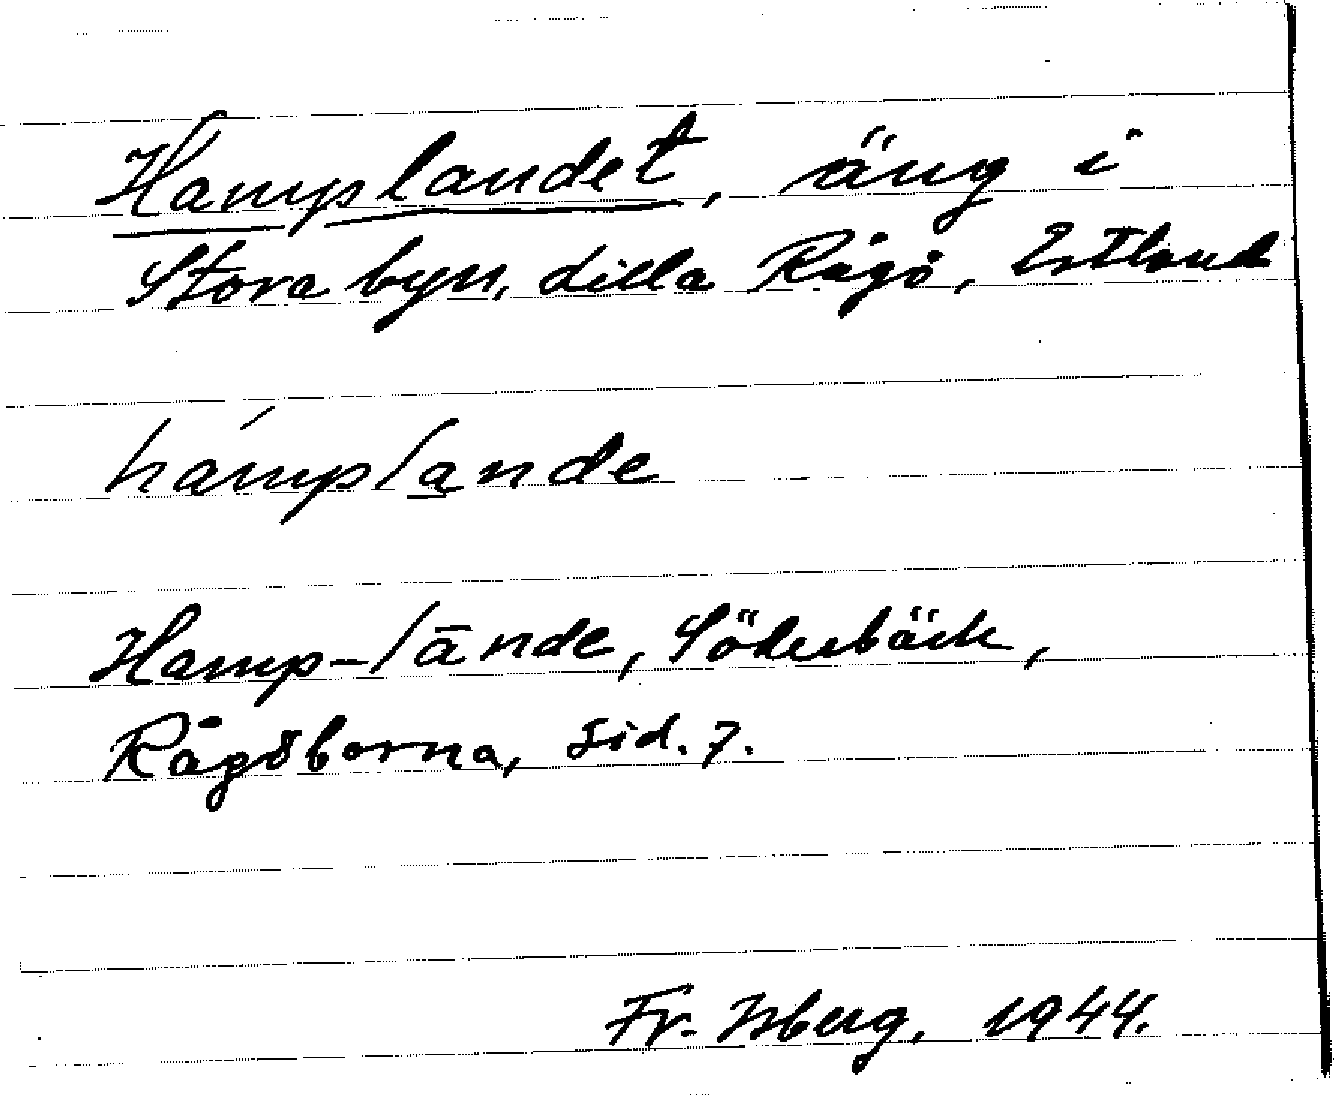 Hamplandet, äng i
Stora byn, Lilla Rågö, Estland
hámplande
Hamp-lānde, Söderbäck,
Rågöborna, sid. 7.
Fr. Isberg, 1944.